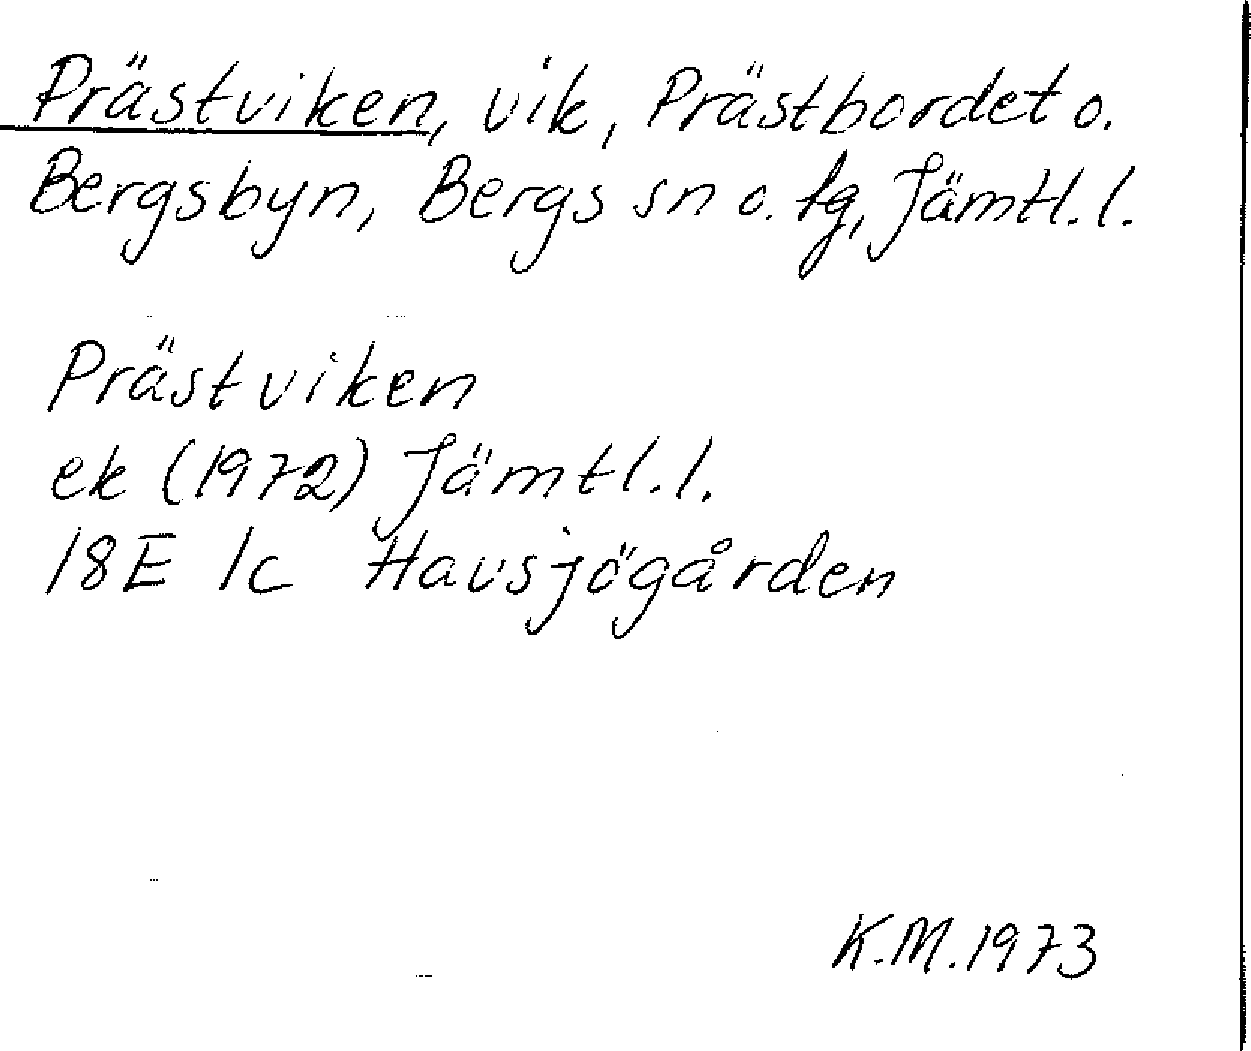 Prästviken, vik, Prästbordet o.
Bergsbyn, Bergs sn o. tg, Jämtl. l.
Prästviken
ek (1972) Jämtl. l.
18E 1c Havsjögården
K.M. 1973